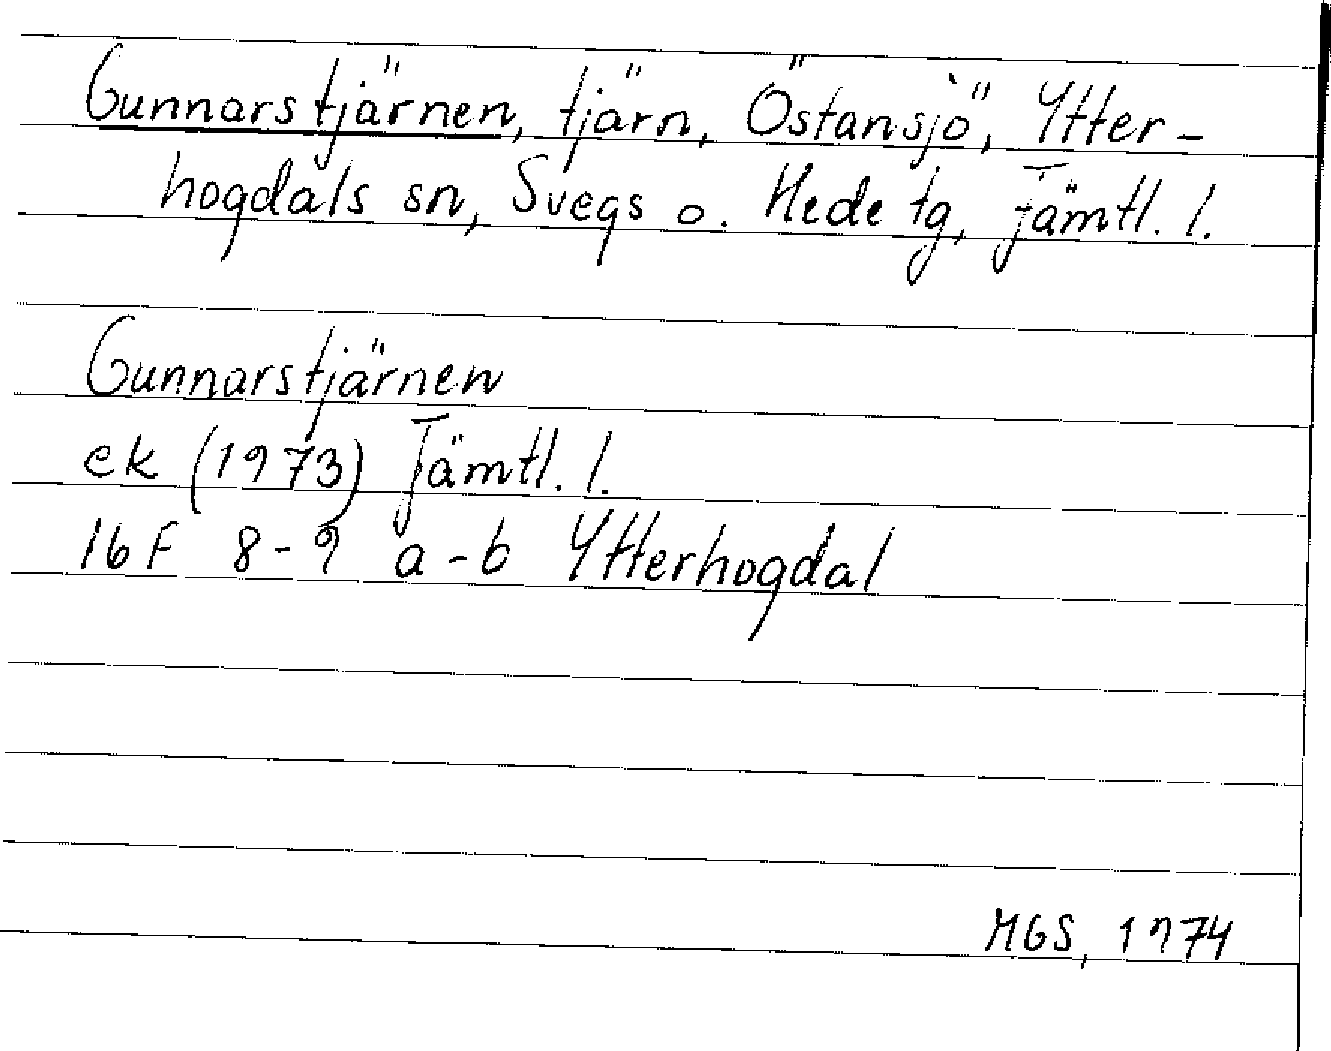 Gunnarstjärnen, tjärn, Östansjö, Ytter-
hogdals sn, Svegs o. Hede tg, Jämtl. l.
Gunnarstjärnen
ek (1973) Jämtl. l.
16F 8-9 a-b Ytterhogdal
MGS, 1974